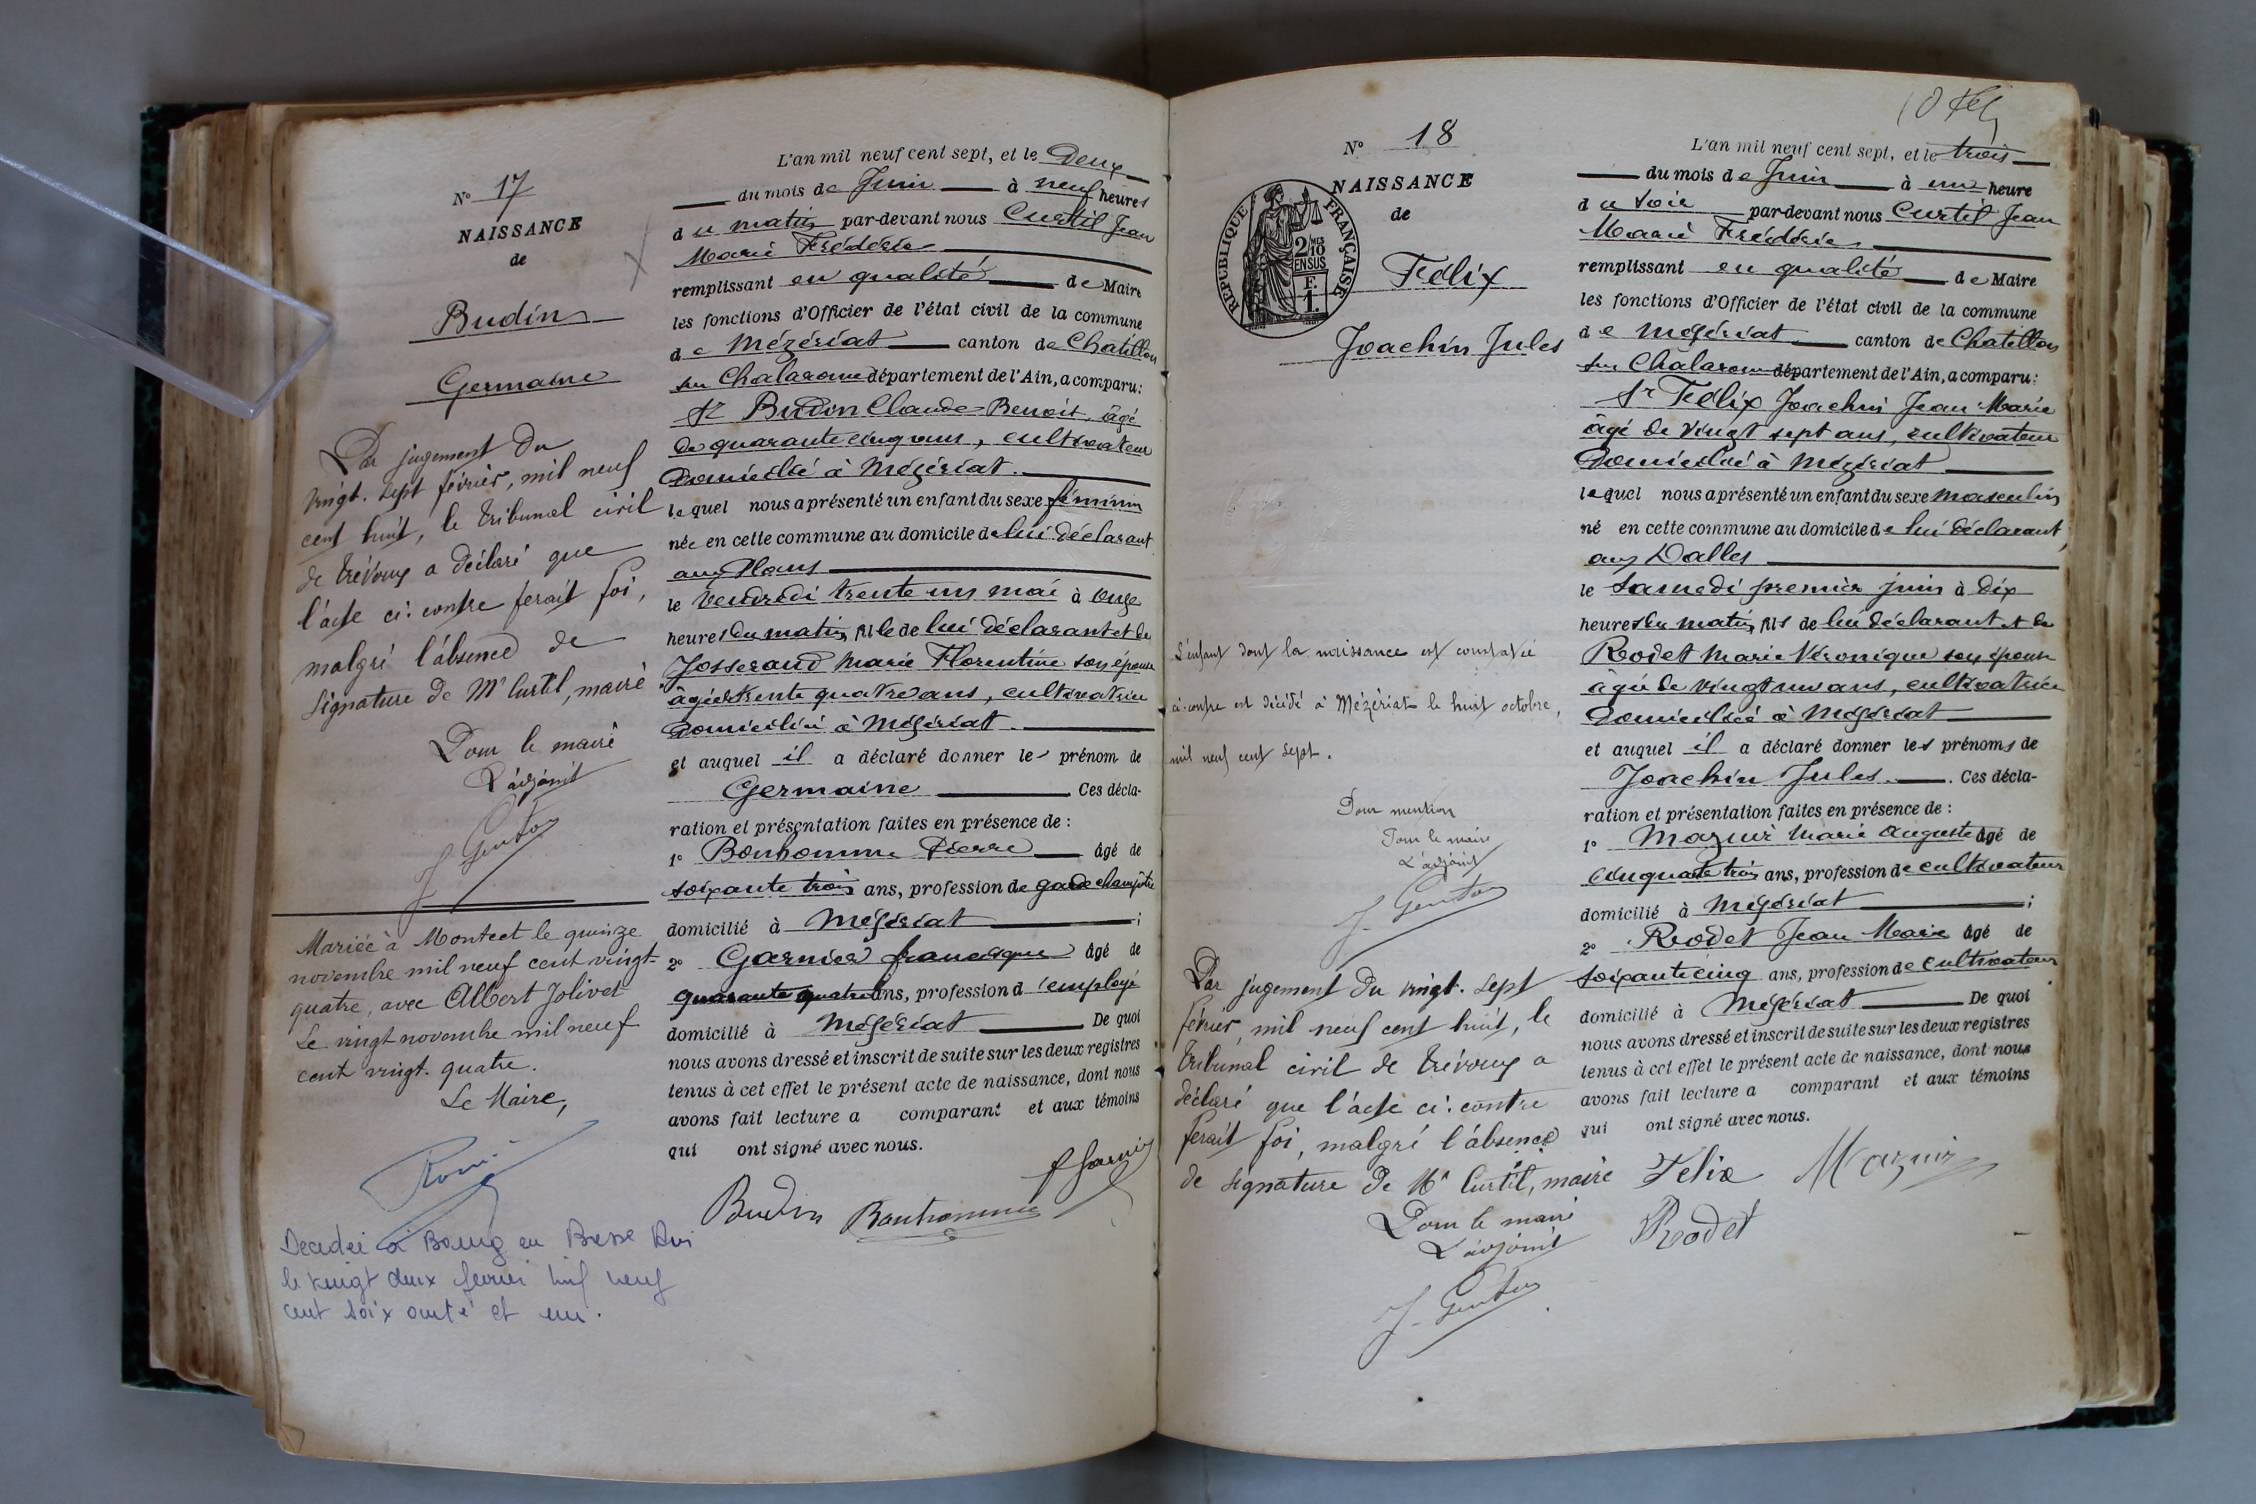 N° 17
NAISSANCE
de
Budin
Germaine
Par jugement du
vingt-sept février, mil neuf
cent huit, le tribunal civil
de Trévoux a déclaré que
l'acte ci-contre ferait foi,
malgré l'absence de
signature de Mr Curtil, maire
Pour le maire
L'adjoint
J. Genton
Mariée à Montcet le quinze
novembre mil neuf cent vingt-
quatre, avec Albert Jolivet
Le vingt novembre mil neuf
cent vingt-quatre.
Le Maire,
Décédée à Bourg en Bresse Ain
le vingt deux février mil neuf
cent soixante et un.
L'an mil neuf cent sept, et le Deux
du mois de Juin à neuf heures
du matin par-devant nous Curtil Jean
Marie Frédéric
remplissant en qualité de Maire
les fonctions d'Officier de l'état civil de la commune
de Mézériat canton de Chatillon
sur Chalaronne département de l'Ain, a comparu :
Sr Budin Claude-Benoit, âgé
de quarante cinq ans, cultivateur
Domicilié à Mézériat.
lequel nous a présenté un enfant du sexe féminin
née en cette commune au domicile de lui déclarant
aux Plans
le Vendredi trente un mai à onze
heures du matin, fille de lui déclarant et de
Josserand Marie Florentine son épouse
âgée de trente quatre ans, cultivatrice
Domiciliée à Mézériat.
et auquel il a déclaré donner le prénom de
Germaine Ces décla-
ration et présentation faites en présence de :
1° Bonhomme Pierre âgé de
soixante trois ans, profession de garde champêtre
domicilié à Mézériat ;
2° Garnier francisque âgé de
quarante quatre ans, profession d'employé
domicilié à Mézériat De quoi
nous avons dressé et inscrit de suite sur les deux registres
tenus à cet effet le présent acte de naissance, dont nous
avons fait lecture a comparant et aux témoins
qui ont signé avec nous.
Budin Bonhomme f Garnier
N° 18
NAISSANCE
de
REPUBLIQUE FRANÇAISE
2/10
EN SUS
F.
1.
Félix
Joachin Jules
L'enfant dont la naissance est constatée
ci-contre est décédé à Mézériat le huit octobre,
mil neuf cent sept.
Pour mention
Pour le maire
L'adjoint
J. Genton
Par jugement du vingt-sept
février, mil neuf cent huit, le
tribunal civil de Trévoux a
déclaré que l'acte ci-contre
ferait foi, malgré l'absence
de signature de Mr Curtil, maire
Pour le maire
L'adjoint
J. Genton
L'an mil neuf cent sept, et le trois
du mois de Juin à une heure
du soir par-devant nous Curtil Jean
Marie Frédéric
remplissant en qualité de Maire
les fonctions d'Officier de l'état civil de la commune
de Mézériat canton de Chatillon
sur Chalaronne département de l'Ain, a comparu :
Sr Félix Joachin Jean Marie
âgé de vingt sept ans, cultivateur
Domicilié à Mézériat
lequel nous a présenté un enfant du sexe masculin
né en cette commune au domicile de lui déclarant,
aux Dalles
le Samedi premier juin à dix
heures du matin, fils de lui déclarant et de
Rodet Marie Véronique son épouse
âgée de vingt un ans, cultivatrice
Domiciliée à Mézériat
et auquel il a déclaré donner les prénoms de
Joachin Jules. Ces décla-
ration et présentation faites en présence de :
1° Mazuir Marie Auguste âgé de
cinquante trois ans, profession de cultivateur
domicilié à Mézériat ;
2° Rodet Jean Marie âgé de
soixante cinq ans, profession de cultivateur
domicilié à Mézériat De quoi
nous avons dressé et inscrit de suite sur les deux registres
tenus à cet effet le présent acte de naissance, dont nous
avons fait lecture a comparant et aux témoins
qui ont signé avec nous.
Felix Mazuir
Rodet